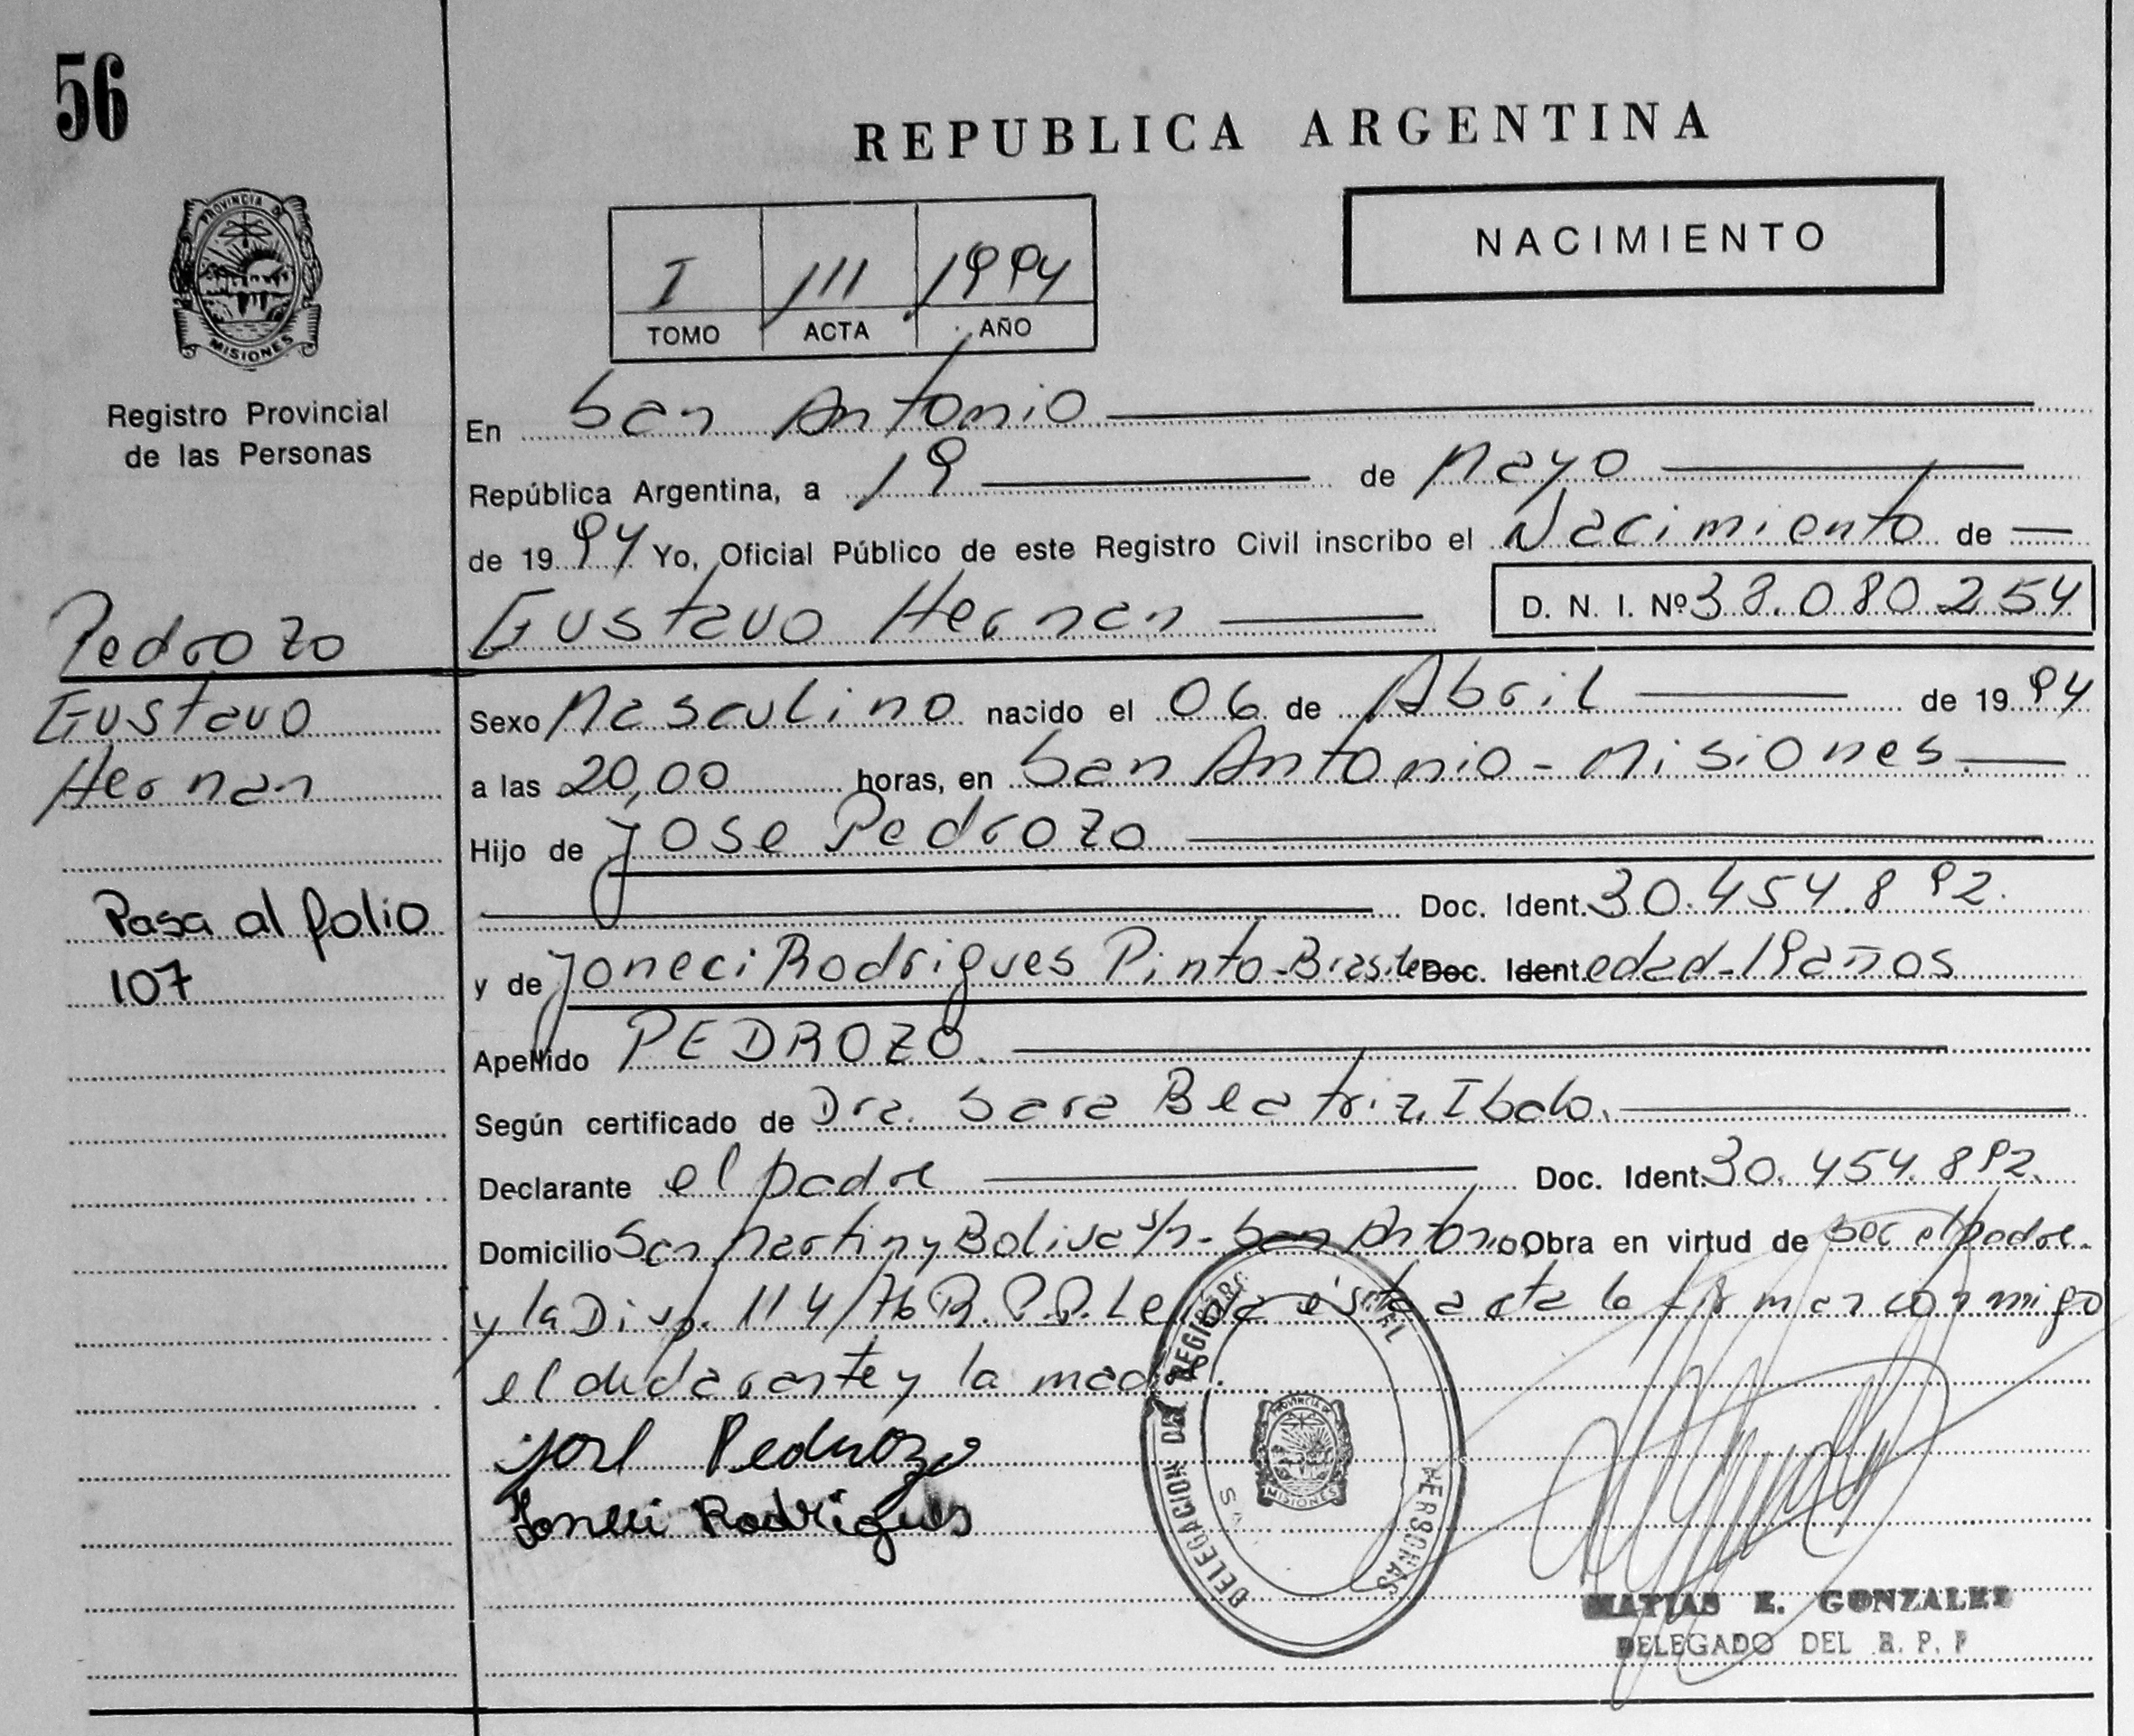 56
REPUBLICA ARGENTINA
PROVINCIA DE
MISIONES
NACIMIENTO
I 111 1994
TOMO ACTA AÑO
Registro Provincial
de las Personas
En San Antonio
República Argentina, a 19 de Mayo
de 1994 Yo, Oficial Público de este Registro Civil inscribo el Nacimiento de
Gustavo Hernan D. N. I. Nº 38.080.254
Pedrozo
Gustavo
Hernan
Sexo Masculino nacido el 06 de Abril de 1994
a las 20,00 horas, en San Antonio - Misiones.
Hijo de Jose Pedrozo
Doc. Ident. 30.454.892.
Pasa al folio
107
y de Joneci Rodrigues Pinto - Doc. Ident. edad - 19 años
Apellido PEDROZO.
Según certificado de Dra. Sara Beatriz Ibalo.
Declarante el padre Doc. Ident. 30.454.892.
Domicilio San Martin y Boliva s/n - San Antonio Obra en virtud de ser el padre.
y la Disp. 114/76 R.P.P. Leida ésta acta la firman conmigo
el declarante y la madre.
José Pedrozo
Joneci Rodrigues
DELEGACION DEL REGISTRO PERSONAS
MISIONES
MATIAS E. GONZALEZ
DELEGADO DEL R. P. P